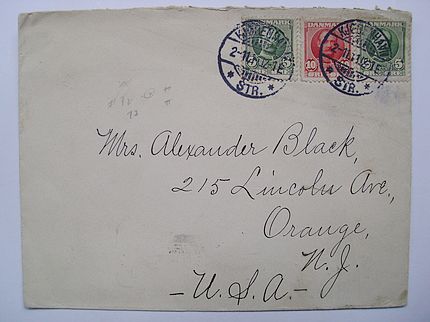 DANMARK DANMARK DANMARK
KJØBENHAVN KJØBENHAVN
10 5
STR. STR.
Mrs. Alexander Black,
215 Lincoln Ave.,
Orange,
N. J.
- U. S. A. -